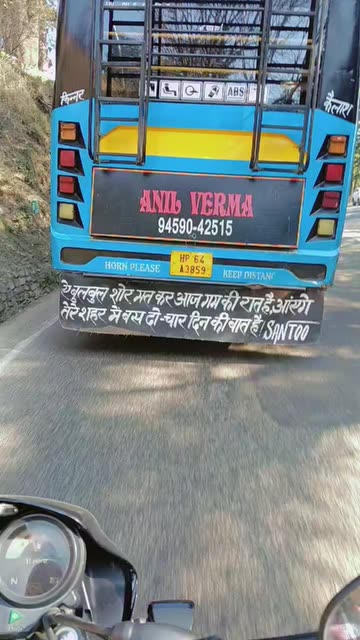 किन्नर कैलाश
ABS
ANIL VERMA
94590-42515
HP 64
A3859
HORN PLEASE KEEP DISTANC
ऐ बुलबुल शोर मत कर आज गम की रात है, आएंगे
तेरे शहर में बस दो-चार दिन की बात है। SANTOO
N